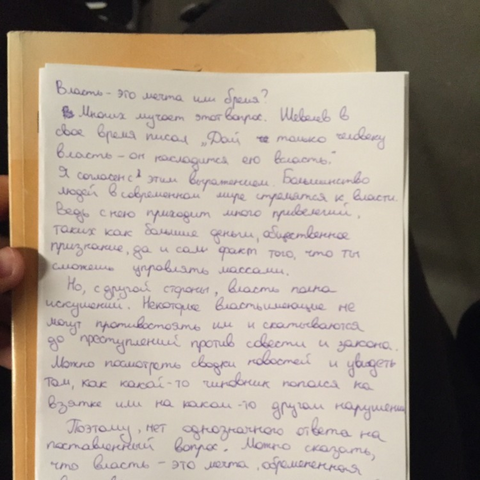 Власть - это мечта или бремя?
Многих мучает этот вопрос. Шевелев в
свое время писал „Дай только человеку
власть - он насладится ею всласть."
Я согласен с этим выражением. Большинство
людей в современном мире стремятся к власти
Ведь с нею приходит много привелегий,
таких как большие деньги, общественное
признание, да и сам факт того, что ты
сможешь управлять массами.
Но, с другой стороны, власть полна
искушений. Некоторые властьимеющие не
могут противостоять им и скатываются
до преступлений против совести и закона.
Можно посмотреть сводки новостей и увидеть
там, как какой-то чиновник попался на
взятке или на каком-то другом нарушении
Поэтому, нет однозначного ответа на
поставленный вопрос. Можно сказать,
что власть - это мечта, обремененная